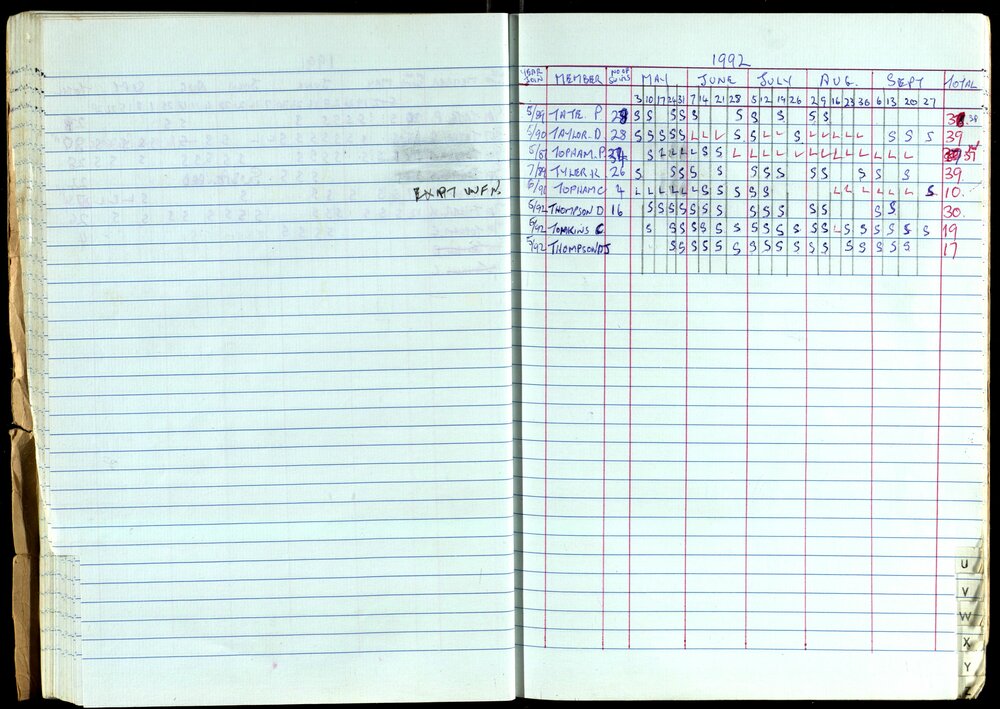 1992
YEAR JOIN MEMBER NO OF SWIMS MAY JUNE JULY AUG. SEPT TOTAL
3 10 17 24 31 7 14 21 28 5 12 19 26 2 9 16 23 30 6 13 20 27
5/89 TATE. P. S S S S S S S S S S 38
5/90 TAYLOR. D. 28 S S S S S L L L S S L L S L L L L L S S S 39
TOPHAM. P. S L L L L S S L L L L L L L L L L L L L
7/89 TYLER K 26 S S S S S S S S S S S S S 39
EXAPT
6/91 TOPHAM C 4 L L L L L S S S S S S L L L L L L S 10.
5/92 THOMPSON D 16 S S S S S S S S S S S S S S 30.
5/92 TOMKINS C S S S S S S S S S S S S S L S S S S S S 19
5/92 THOMPSON DJ S S S S S S S S S S S S S S S S S 17
U
V
W
X
Y